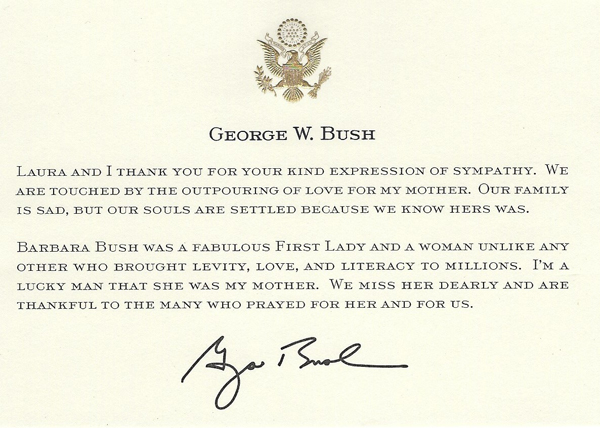 GEORGE W. BUSH
LAURA AND I THANK YOU FOR YOUR KIND EXPRESSION OF SYMPATHY. WE
ARE TOUCHED BY THE OUTPOURING OF LOVE FOR MY MOTHER. OUR FAMILY
IS SAD, BUT OUR SOULS ARE SETTLED BECAUSE WE KNOW HERS WAS.
BARBARA BUSH WAS A FABULOUS FIRST LADY AND A WOMAN UNLIKE ANY
OTHER WHO BROUGHT LEVITY, LOVE, AND LITERACY TO MILLIONS. I'M A
LUCKY MAN THAT SHE WAS MY MOTHER. WE MISS HER DEARLY AND ARE
THANKFUL TO THE MANY WHO PRAYED FOR HER AND FOR US.
Bush